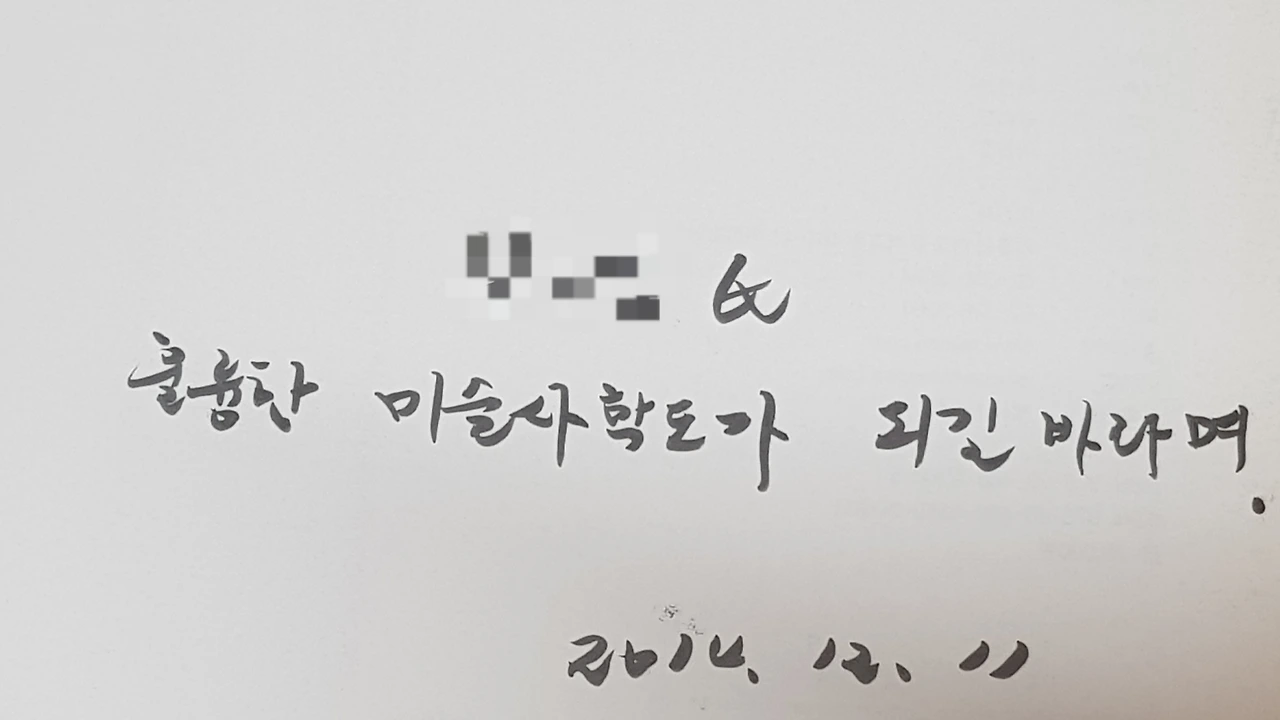 훌륭한 미술사학도가 되길 바라며.
2014. 12. 11